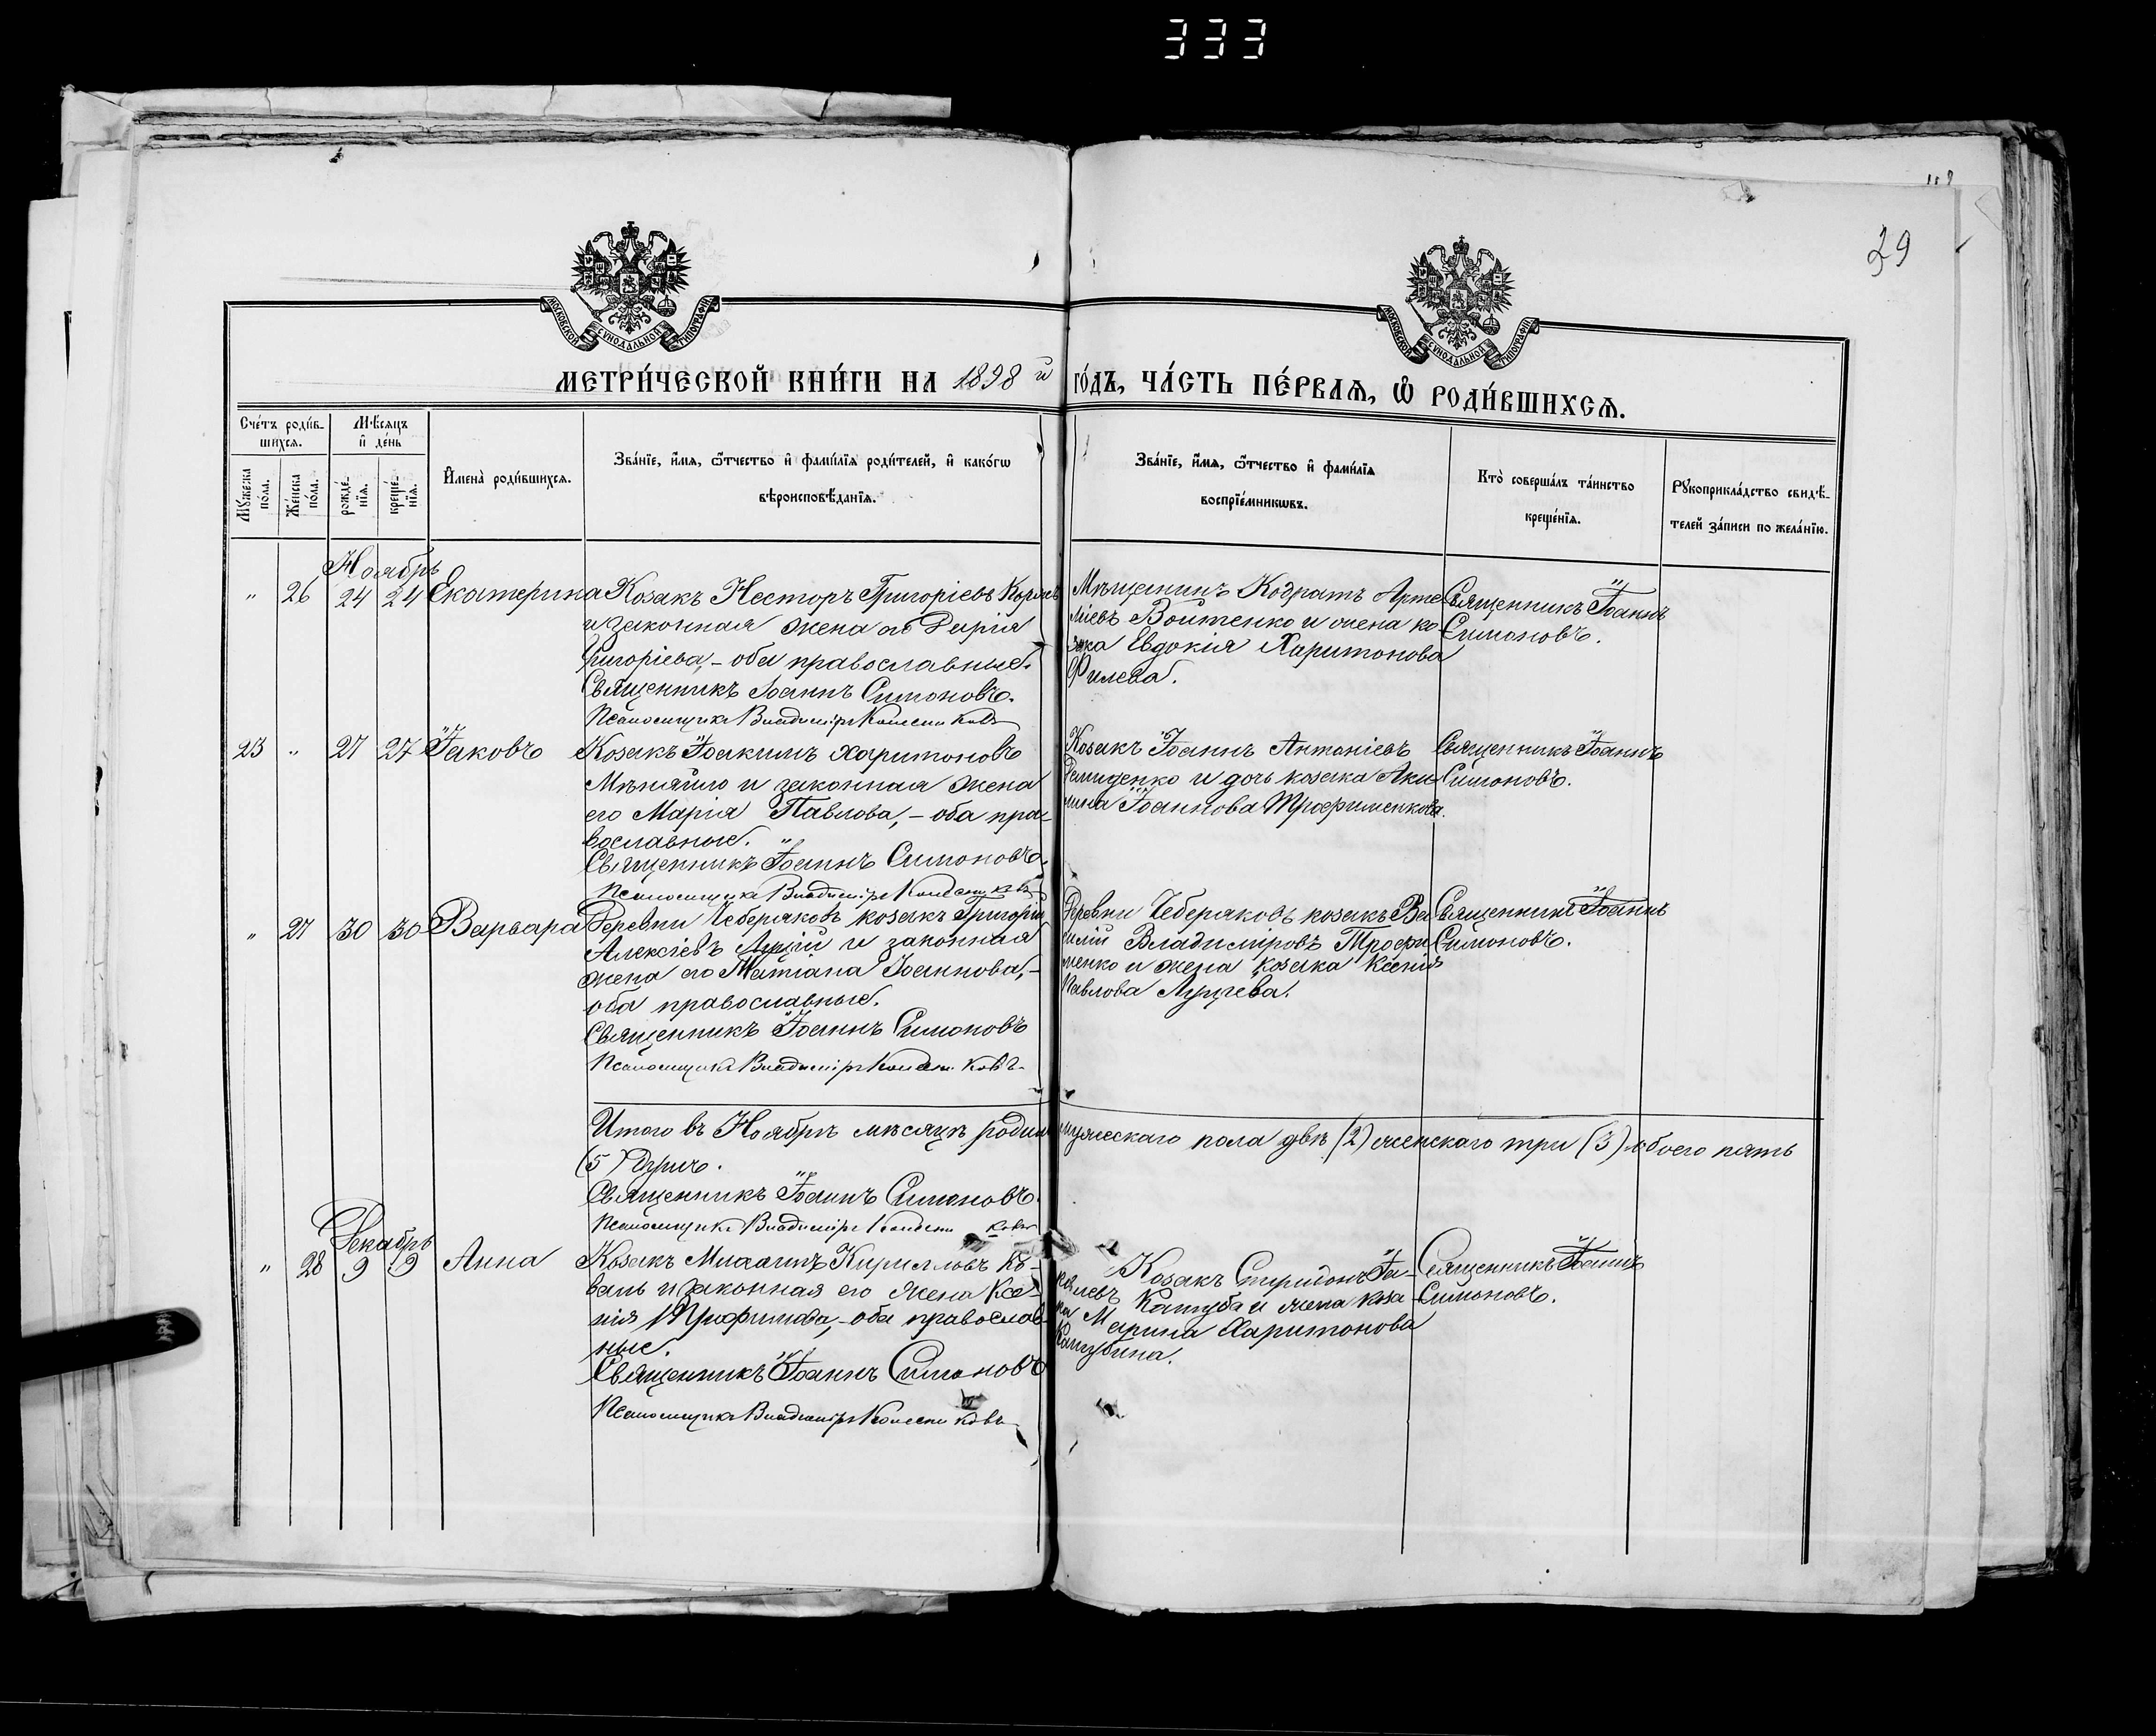 333
29
МОСКОВСКОЙ СѴНОДАЛЬНОЙ ТИПОГРАФІИ
МОСКОВСКОЙ СѴНОДАЛЬНОЙ ТИПОГРАФІИ
МЕТРИ́ЧЕСКОЙ КНИ́ГИ НА 1898 й ГО́ДЪ, ЧА́СТЬ ПЕ́РВАѦ, Ѡ҆ РОДИ́ВШИХСѦ.
Сче́тъ роди́в-
шихсѧ.
Мѣ́сѧцъ
и҆ де́нь
Мꙋ́жеска
по́ла.
Же́нска
по́ла.
рожде́-
нїѧ.
креще́-
нїѧ.
И҆мена̀ роди́вшихсѧ.
Зва́нїе, и҆́мѧ, ѻ҆́тчество и҆ фами́лїѧ роди́телей, и҆ како́гѡ
вѣроисповѣ́данїѧ.
Зва́нїе, и҆́мѧ, ѻ҆́тчество и҆ фами́лїѧ
воспрїе́мникѡвъ.
Кто̀ соверша́лъ та́инство
креще́нїѧ.
Рꙋкоприкла́дство свидѣ́-
телей за́писи по жела́нїю.
Ноябрь
" 26 24 24 Екатерина
Козакъ Несторъ Григоріевъ
и законная жена его Дарія
Григоріева, - оба православные.
Священникъ Іоаннъ Симоновъ.
Псаломщикъ Владиміръ Колесниковъ
Мѣщанинъ Кодратъ Арте
міевъ Войтенко и жена ко-
зака Евдокія Харитонова
Филева.
Священникъ Іоаннъ
Симоновъ.
23 " 27 27 Іаковъ
Козакъ Іоакимъ Харитоновъ
Мѣняйло и законная жена
его Марія Павлова, - оба пра-
вославные.
Священникъ Іоаннъ Симоновъ.
Псаломщикъ Владиміръ Колесниковъ
Козакъ Іоаннъ Антоніевъ
Демиденко и дочь козака Аки-
лина Іоаннова Трофименкова.
Священникъ Іоаннъ
Симоновъ.
" 27 30 30 Варвара
Деревни Чеберяковъ козакъ Григорій
Алексіевъ Луцій и законная
жена его Татіана Іоаннова, -
оба православные.
Священникъ Іоаннъ Симоновъ
Псаломщикъ Владиміръ Колесниковъ
Деревни Чеберяковъ козакъ Ва
силій Владиміровъ Трофи
менко и жена козака Ксенія
Павлова Луцева.
Священникъ Іоаннъ
Симоновъ.
Итого въ Ноябрѣ мѣсяцѣ родил мужескаго пола двѣ (2) женскаго три (3) обоего пять
(5) душъ.
Священникъ Іоаннъ Симоновъ.
Псаломщикъ Владиміръ Колесниковъ
Декабрь
" 28 9 9 Анна
Козакъ Кирилловъ Ко-
валь и законная его жена Ксе-
нія Трофимова, - оба православ-
ные.
Священникъ Іоаннъ Симоновъ
Псаломщикъ Владиміръ Колесниковъ
Козакъ Спиридонъ Іа-
ковлевъ Кашуба и жена коза-
ка Марина Харитонова
Кашубина.
Священникъ Іоаннъ
Симоновъ.